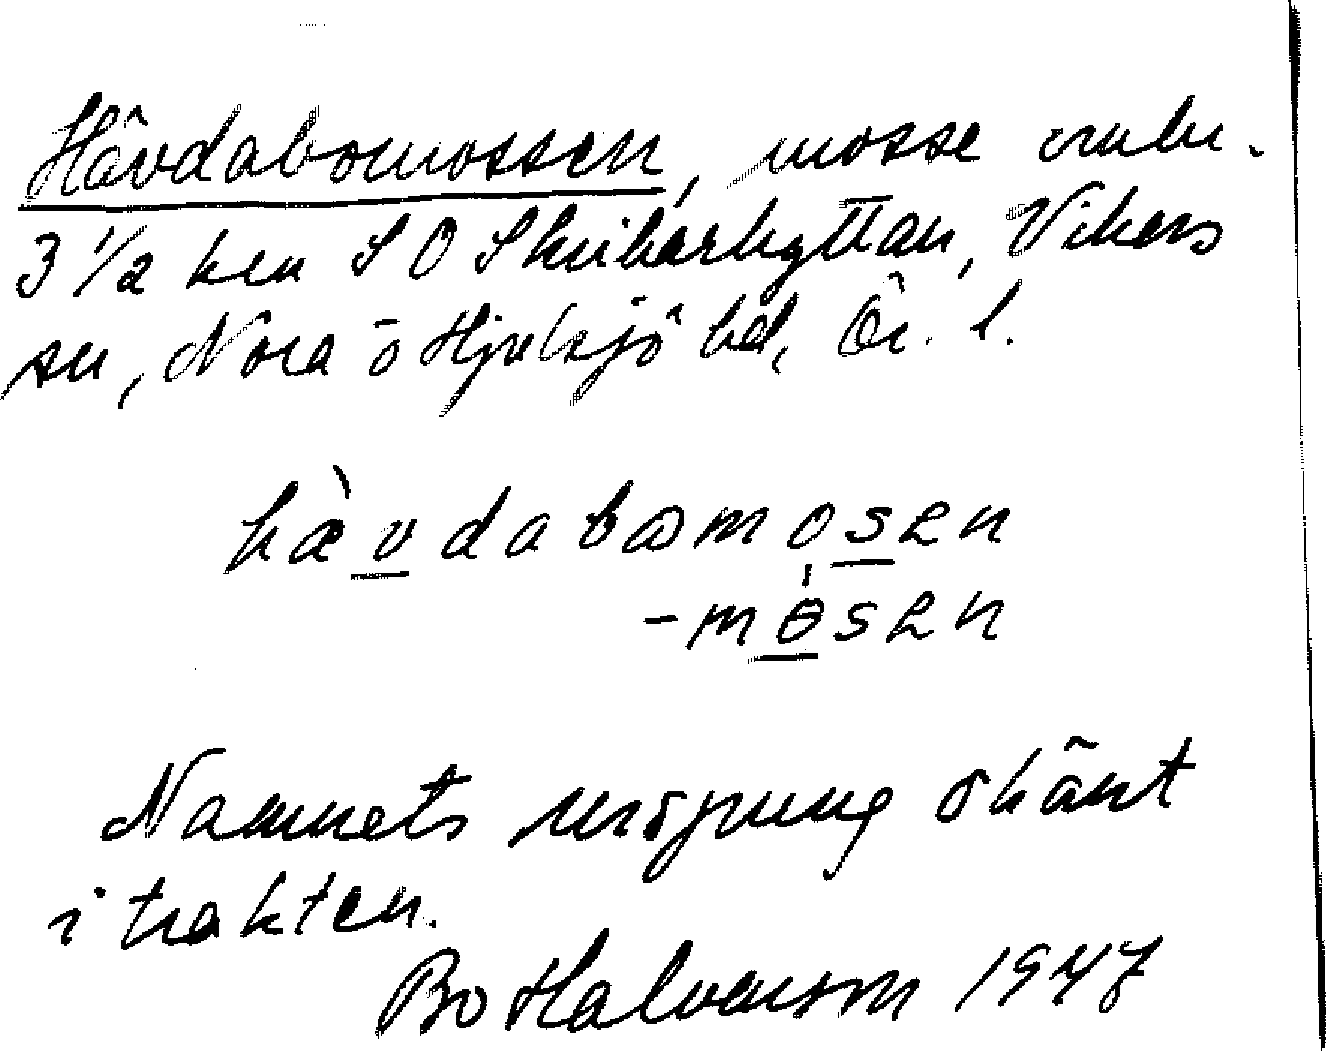 Hävdabomossen, mosse omkr.
3 1/2 km SO Skrikarhyttan, Vikers
sn, Nora o Hjulsjö bd, Ör. l.
hæ̀vdabωmosen
-mɵ̀sen
Namnets ursprung okänt
i trakten.
Bo Halvarson 1947